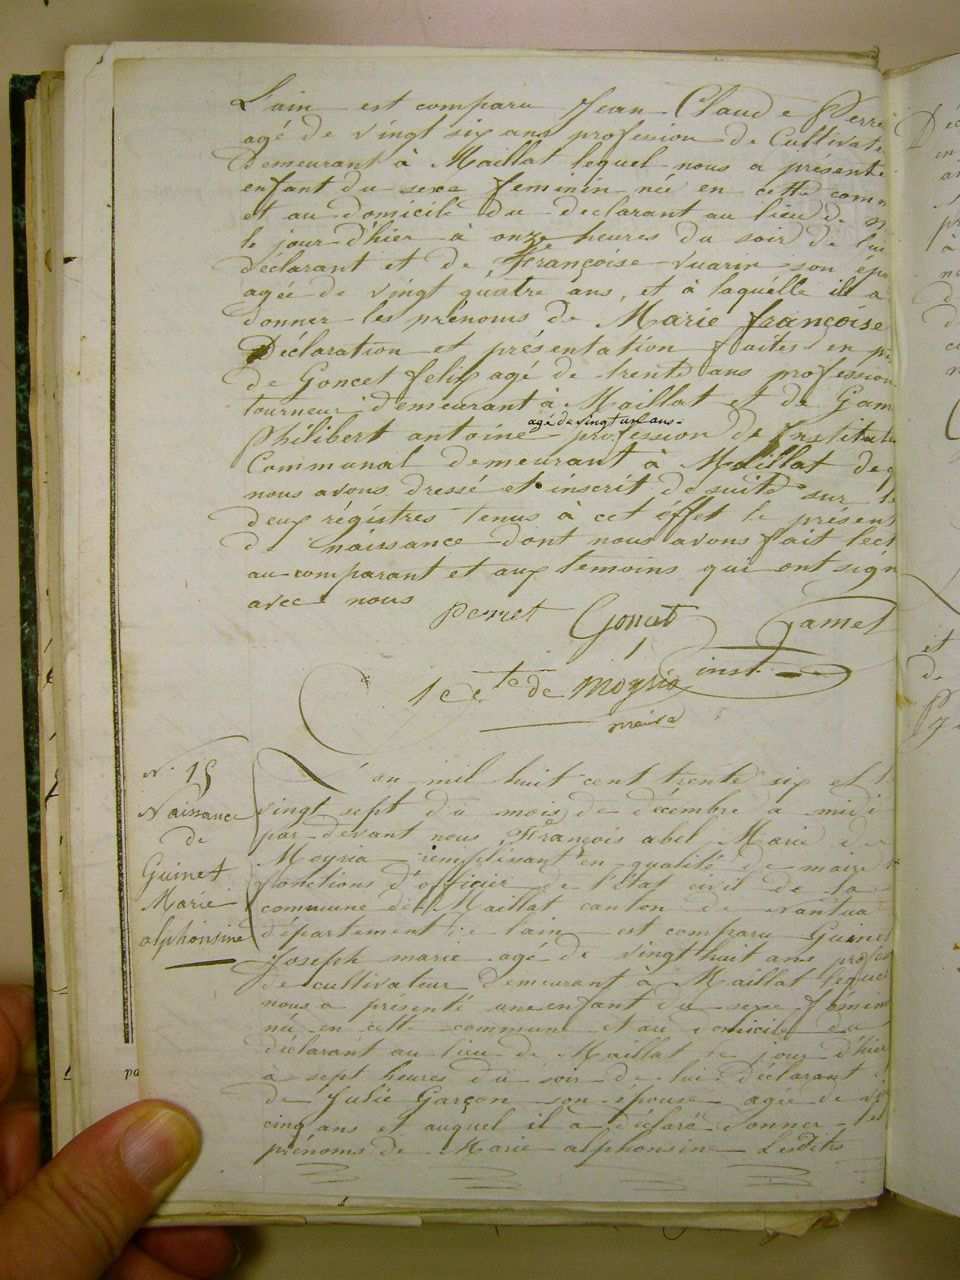 L'ain est comparu Jean Claude Perre
agé de vingt six ans profession de Cultivate
Demeurant à Maillat lequel nous a présenté
enfant du sexe feminin née en cette comm
et au domicile du declarant au lieu de
le jour d'hier à onze heures du soir de lui
déclarant et de Françoise vuarin son épo
agée de vingt quatre ans, et à laquélle ile a
donner les prénoms de Marie françoise
Déclaration et présentation faites en pr
de Goncet felix agé de trente ans profession
tourneur demeurant à Maillat et de Gam
agé de vingt un ans.
Philibert antoine profession de Institute
Communal demeurant à Maillat de q
nous avons dressé et inscrit de suite sur le
deux régistres tenus à cet éffet le présent
de naissance dont nous avons fait lect
au comparant et aux temoins qui ont sign
avec nous
perret Goncet Gamet
inst.
le Cte de Moyria
maire
N° 15
Naissance
de
Guinet
Marie
alphonsine
L'an mil huit cent trente six et l
vingt sept du mois de décembre a midi
par devant nous François abel Marie de
Moyria remplissant en qualité de maire
fonctions d'officier de l'état civil de la
commune de Maillat canton de nantua
département de lain est comparu Guinet
Joseph marie agé de vingt huit ans profes
de cultivateur Demeurant à Maillat lequel
nous a présenté une enfant du sexe féminin
née en cette commune et au domicile du
déclarant au lieu de Maillat le jour d'hier
à sept heures du soir de lui déclarant
de Julie Garçon son epouse agée de vi
cinq ans et auquel il a déclaré donner les
prénoms de Marie alphonsine Lesdits